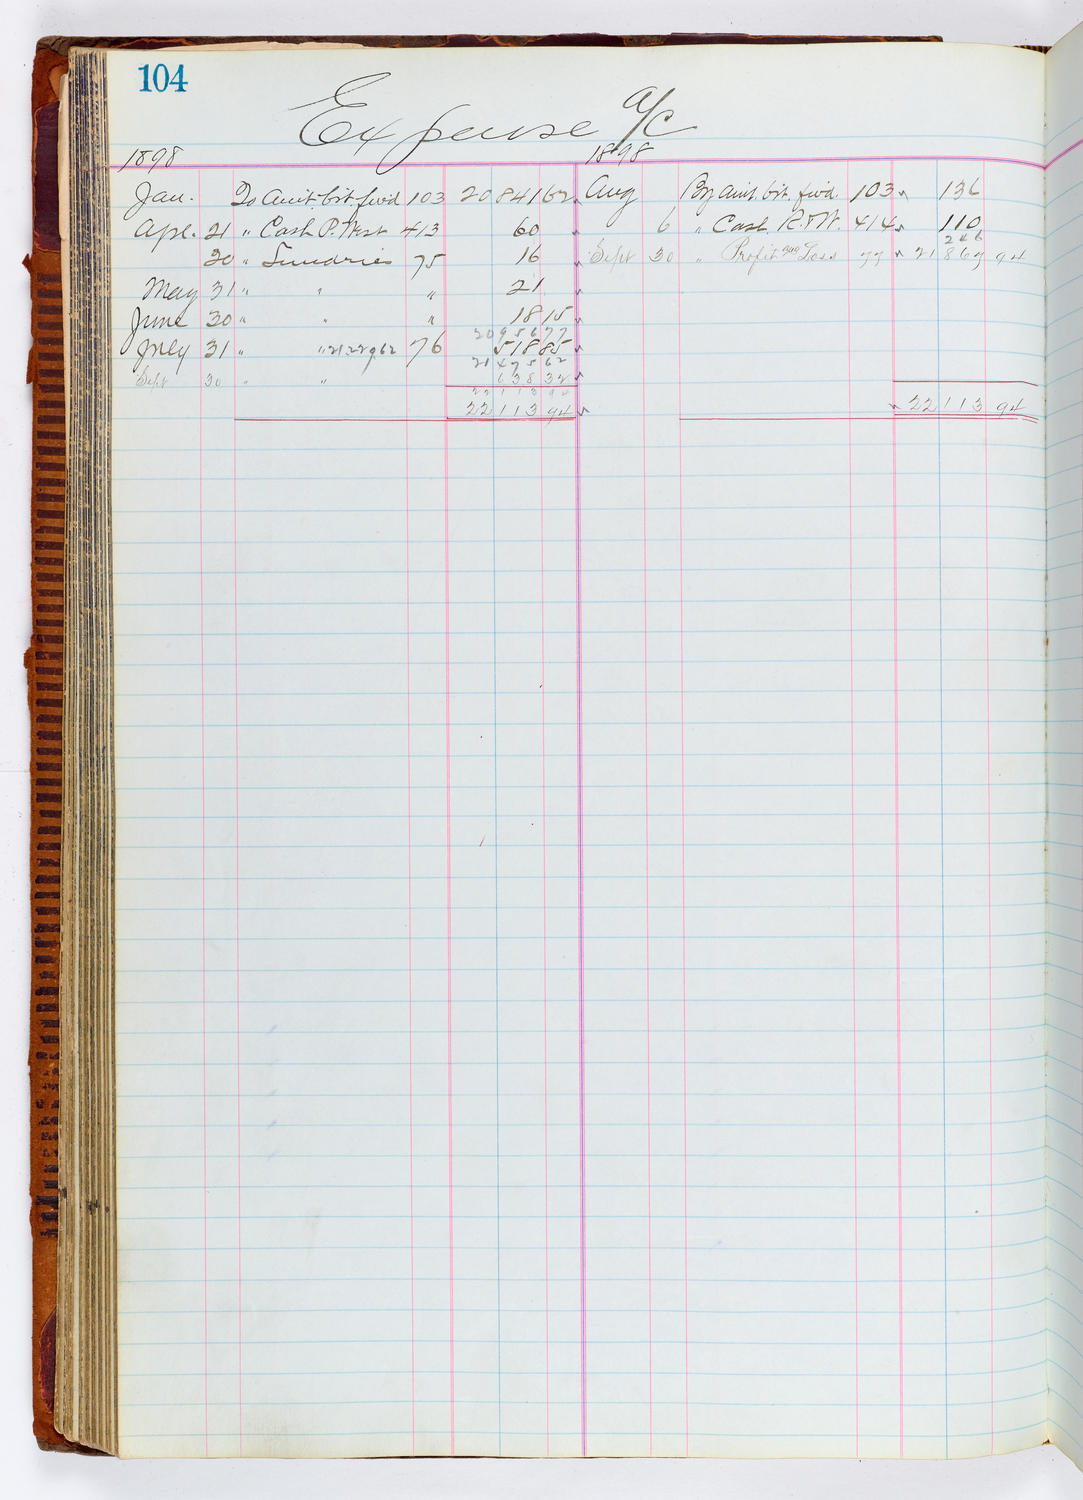 104
Expense a/c
1898 1898
Jan. To amt. brt. fwd 103 20841 62 Aug By amt. brt. fwd. 103 136
Apr. 21 " Cash P. West 413 60 6 " Cash R. & W. 414 110
246
30 " Sundries 75 16 Sept 30 " Profit and Loss 77 21867 94
May 31 " " " 21
June 30 " " " 18 15
20956 77
July 31 " " 76 518 85
21475 62
Sept 30 " " 638 32
22113 94
22113 94 22113 94